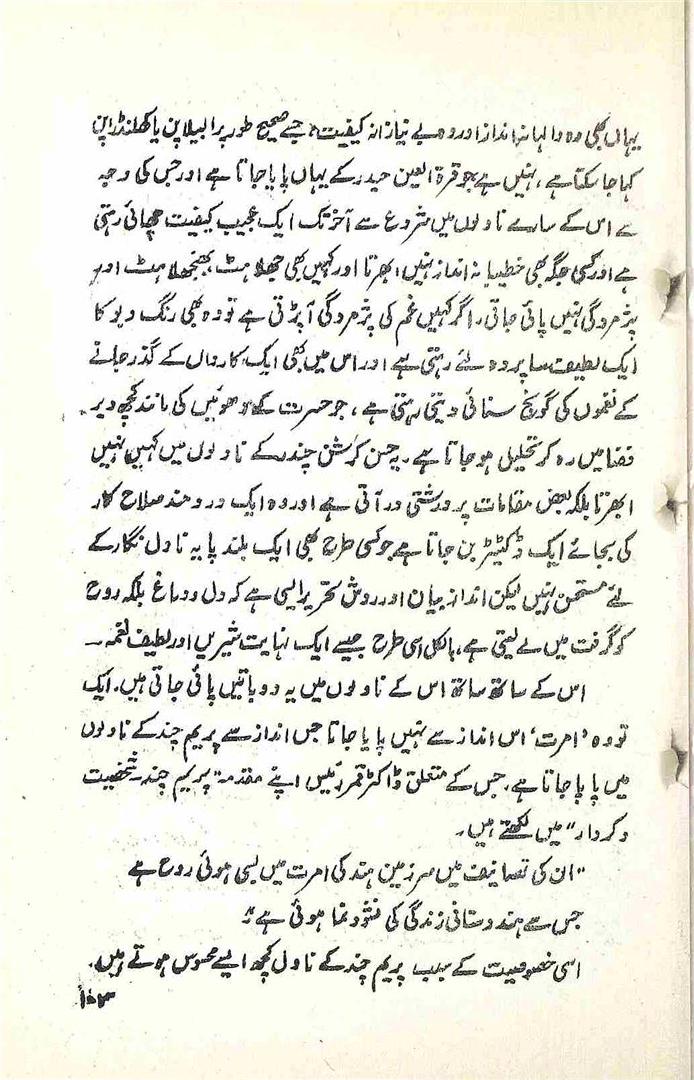 یہاں بھی وہ والہانہ انداز اور وہ بے نیازانہ کیفیت، جسے صحیح طور پر البیلا پن یا کھلنڈراپن
کہا جا سکتا ہے، نہیں ہے جو قرۃ العین حیدر کے یہاں پایا جاتا ہے اور جس کی وجہ
سے اس کے سارے ناولوں میں شروع سے آخر تک ایک عجیب کیفیت چھائی رہتی
ہے اور کسی جگہ بھی خطیبانہ انداز نہیں ابھرتا اور کہیں بھی جھلاہٹ، جھنجھلاہٹ اور
پژمردگی نہیں پائی جاتی، اگر کہیں غم کی پژمردگی آ پڑتی ہے تو وہ بھی رنگ و بو کا
ایک لطیف سا پردہ لئے رہتی ہے اور اس میں بھی ایک کارواں کے گذر جانے
کے نغموں کی گونج سنائی دیتی رہتی ہے، جو حسرت کے دھوئیں کی مانند کچھ دیر
فضا میں رہ کر تحلیل ہو جاتا ہے۔ یہ حسن کرشن چندر کے ناولوں میں کہیں نہیں
ابھرتا بلکہ بعض مقامات پر درشتی در آتی ہے اور وہ ایک دردمند صلاح کار
کی بجائے ایک ڈکٹیٹر بن جاتا ہے جو کسی طرح بھی ایک بلند پایہ ناول نگار کے
لئے مستحسن نہیں لیکن انداز بیان اور روش تحریر ایسی ہے کہ دل و دماغ بلکہ روح
کو گرفت میں لے لیتی ہے، بالکل اسی طرح جیسے ایک نہایت شیریں اور لطیف نغمہ۔
اس کے ساتھ ساتھ اس کے ناولوں میں یہ دو باتیں پائی جاتی ہیں۔ ایک
تو وہ 'امرت' اس انداز سے نہیں پایا جاتا جس انداز سے پریم چند کے ناولوں
میں پایا جاتا ہے۔ جس کے متعلق ڈاکٹر قمر رئیس اپنے مقدمہ "پریم چند۔ شخصیت
و کردار" میں لکھتے ہیں۔
"ان کی تصانیف میں سرزمین ہند کی امرت میں بسی ہوئی روح ہے
جس سے ہندوستانی زندگی کی نشوونما ہوئی ہے"
اسی خصوصیت کے سبب پریم چند کے ناول کچھ ایسے محسوس ہوتے ہیں۔